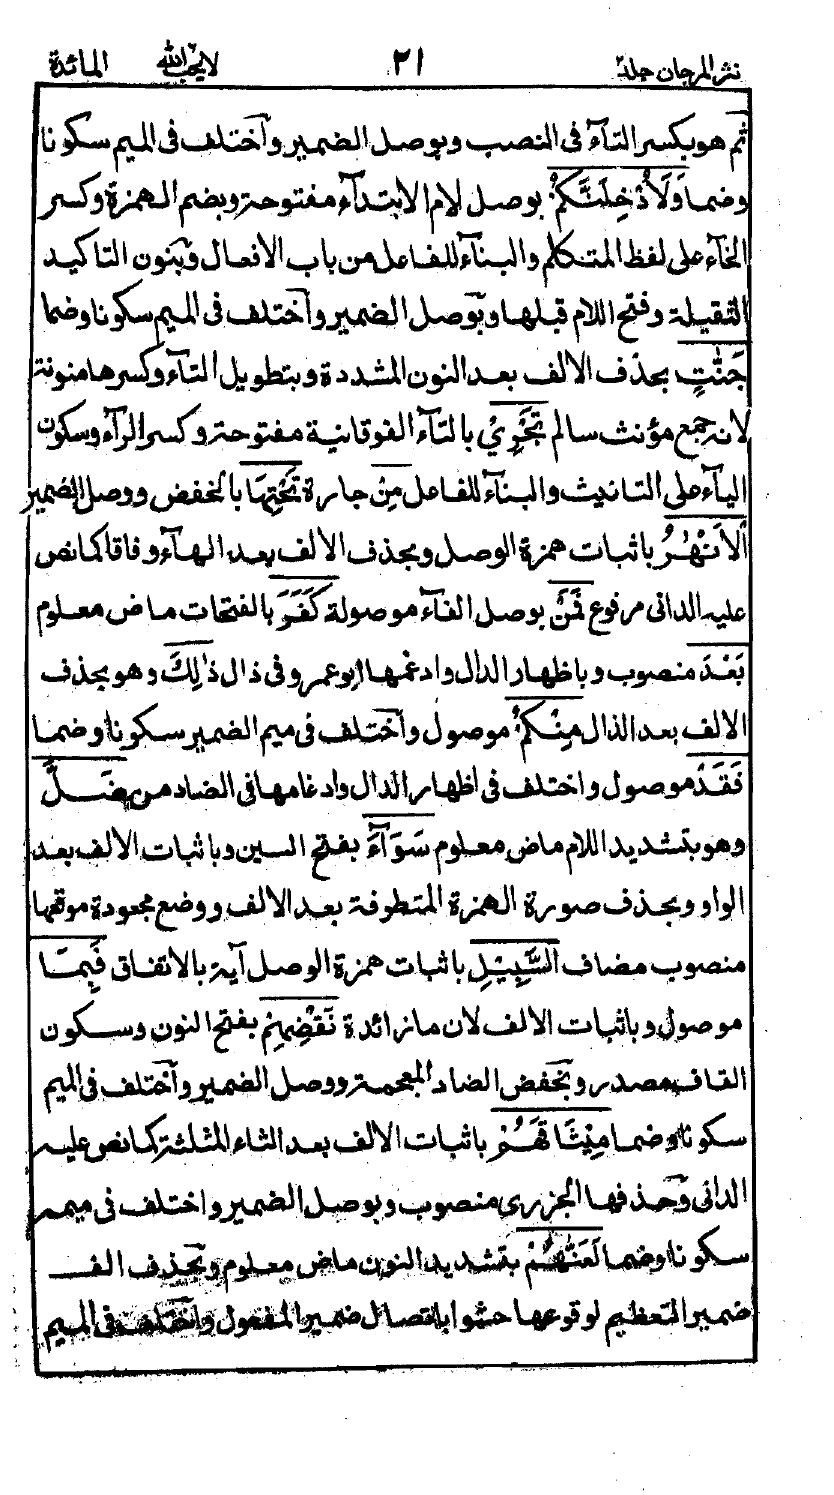 نثر المرجان جلد٢ ٢١ لايحب الله المائدة
ثم هو بكسر التآء فى النصب وبوصل الضمير وآختلف فى الميم سكونا
وضما وَلَأُدْخِلَنَّكُمْ بوصل لام الابتدآء مفتوحة وبضم الهمزة وكسر
الخآء على لفظ المتكلم والبنآء للفاعل من باب الافعال وبنون التاكيد
الثقيلة وفتح اللام قبلها وبوصل الضمير وآختلف فى الميم سكونا وضما
جَنّٰتٍ بحذف الالف بعد النون المشددة وبتطويل التآء وكسرها منونة
لانه جمع مؤنث سالم تَجْرِيْ بالتآء الفوقانية مفتوحة وكسر الرآء وسكون
اليآء على التانيث والبنآء للفاعل مِنْ جارة تَحْتِهَا بالخفض ووصل الضمير
اَلْاَنْهٰرُ باثبات همزة الوصل وبحذف الالف بعد الهآء وفاقا كما نص
عليه الدانى مرفوع فَمَنْ بوصل الفآء موصولة كَفَرَ بالفتحات ماض معلوم
بَعْدَ منصوب وباظهار الدال وادغمها ابو عمرو فى ذال ذٰلِكَ وهو بحذف
الالف بعد الذال مِنْكُمْ موصول وآختلف فى ميم الضمير سكونا وضما
فَقَدْ موصول واختلف فى اظهار الدال وادغامها فى الضاد من ضَلَّ
وهو بتشديد اللام ماض معلوم سَوَآءَ بفتح السين وباثبات الالف بعد
الواو وبحذف صورة الهمزة المتطرفة بعد الالف ووضع مجعودة موقعها
منصوب مضاف السَّبِيْلِ باثبات همزة الوصل آية بالاتفاق فَبِمَا
موصول وباثبات الالف لان ما زائدة نَقْضِهِمْ بفتح النون وسكون
القاف مصدر وبخفض الضاد المعجمة ووصل الضمير وآختلف فى الميم
سكونا وضما مِيْثَاقَهُمْ باثبات الالف بعد الثاء المثلثة كما نص عليه
الدانى وحذفها الجزرى منصوب وبوصل الضمير واختلف فى ميمه
سكونا وضما لَعَنّٰهُمْ بتشديد النون ماض معلوم وبحذف الف
ضمير التعظيم لوقوعها حشوا باتصال ضمير المفعول واختلف فى الميم